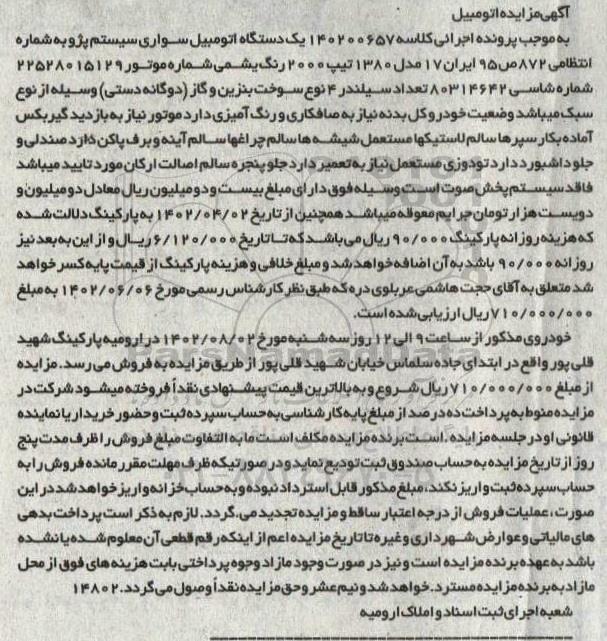 آگهی مزایده اتومبیل
به موجب پرونده اجرائی کلاسه ۱۴۰۲۰۰۶۵۷ یک دستگاه اتومبیل سواری سیستم پژو به شماره
انتظامی ۸۷۲ص۹۵ ایران ۱۷ مدل ۱۳۸۰ تیپ ۲۰۰۰ رنگ یشمی شماره موتور ۲۲۵۲۸۰۱۵۱۲۹
شماره شاسی ۸۰۳۱۴۶۴۲ تعداد سیلندر ۴ نوع سوخت بنزین و گاز (دوگانه دستی) وسیله از نوع
سبک میباشد وضعیت خودرو کل بدنه نیاز به صافکاری و رنگ آمیزی دارد موتور نیاز به بازدید گیربکس
آماده بکار سپرها سالم لاستیکها مستعمل شیشه ها سالم چراغها سالم آینه و برف پاکن دارد صندلی و
جلو داشبورد دارد تودوزی مستعمل نیاز به تعمیر دارد جلو پنجره سالم اصالت ارکان مورد تایید میباشد
فاقد سیستم پخش صوت است وسیله فوق دارای مبلغ بیست و دو میلیون ریال معادل دو میلیون و
دویست هزار تومان جرایم معوقه میباشد همچنین از تاریخ ۱۴۰۲/۰۴/۰۲ به پارکینگ دلالت شده
که هزینه روزانه پارکینگ ۹۰/۰۰۰ ریال می باشد که تا تاریخ ۶/۱۲۰/۰۰۰ ریال و از این به بعد نیز
روزانه ۹۰/۰۰۰ باشد به آن اضافه خواهد شد و مبلغ خلافی و هزینه پارکینگ از قیمت پایه کسر خواهد
شد متعلق به آقای حجت هاشمی عربلوی دره که طبق نظر کارشناس رسمی مورخ ۱۴۰۲/۰۶/۰۶ به مبلغ
۷۱۰/۰۰۰/۰۰۰ ریال ارزیابی شده است.
خودروی مذکور از ساعت ۹ الی ۱۲ روز سه شنبه مورخ ۱۴۰۲/۰۸/۰۲ در ارومیه پارکینگ شهید
قلی پور واقع در ابتدای جاده سلماس خیابان شهید قلی پور از طریق مزایده به فروش می رسد. مزایده
از مبلغ ۷۱۰/۰۰۰/۰۰۰ ریال شروع و به بالاترین قیمت پیشنهادی نقداً فروخته میشود شرکت در
مزایده منوط به پرداخت ده درصد از مبلغ پایه کارشناسی به حساب سپرده ثبت و حضور خریدار یا نماینده
قانونی او در جلسه مزایده .است برنده مزایده مکلف است ما به التفاوت مبلغ فروش را ظرف مدت پنج
روز از تاریخ مزایده به حساب صندوق ثبت تودیع نماید و در صورتیکه ظرف مهلت مقرر مانده فروش را به
حساب سپرده ثبت واریز نکند، مبلغ مذکور قابل استرداد نبوده و به حساب خزانه واریز خواهد شد در این
صورت، عملیات فروش از درجه اعتبار ساقط و مزایده تجدید می.گردد. لازم به ذکر است پرداخت بدهی
های مالیاتی و عوارض شهرداری و غیره تا تاریخ مزایده اعم از اینکه رقم قطعی آن معلوم شده یا نشده
باشد به عهده برنده مزایده است و نیز در صورت وجود مازاد وجوه پرداختی بابت هزینه های فوق از محل
مازاد به برنده مزایده مسترد. خواهد شد و نیم عشر و حق مزایده نقداً وصول می گردد. ۱۴۸۰۲
شعبه اجرای ثبت اسناد و املاک ارومیه